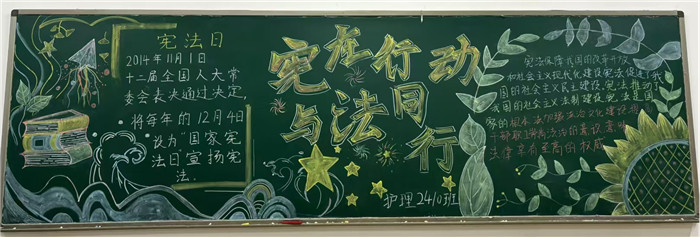 宪法日
2014年11月1日
十二届全国人大常
委会表决通过决定,
将每年的12月4日
设为“国家宪
法日宣扬宪
法.
宪在行动
与法同行
护理2410班
宪法保障我国的改革开放
和社会主义现代化建设宪法促进了我
国的社会主义民主建设,宪法推动了
我国的社会主义法制建设,宪法是国
家的根本法
法律享有至高的权威